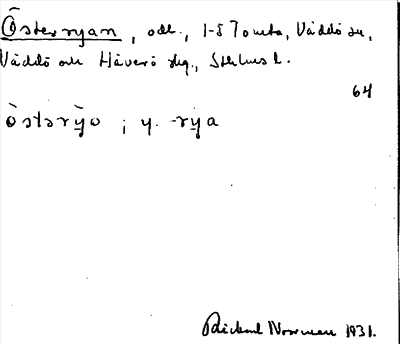 Österryan, odl., 1-5 Tomta, Väddö sn,
Väddö och Häverö skg., Sthlms l.
64
östərÿo ; y. -rya
Rickard Norrman 1931.